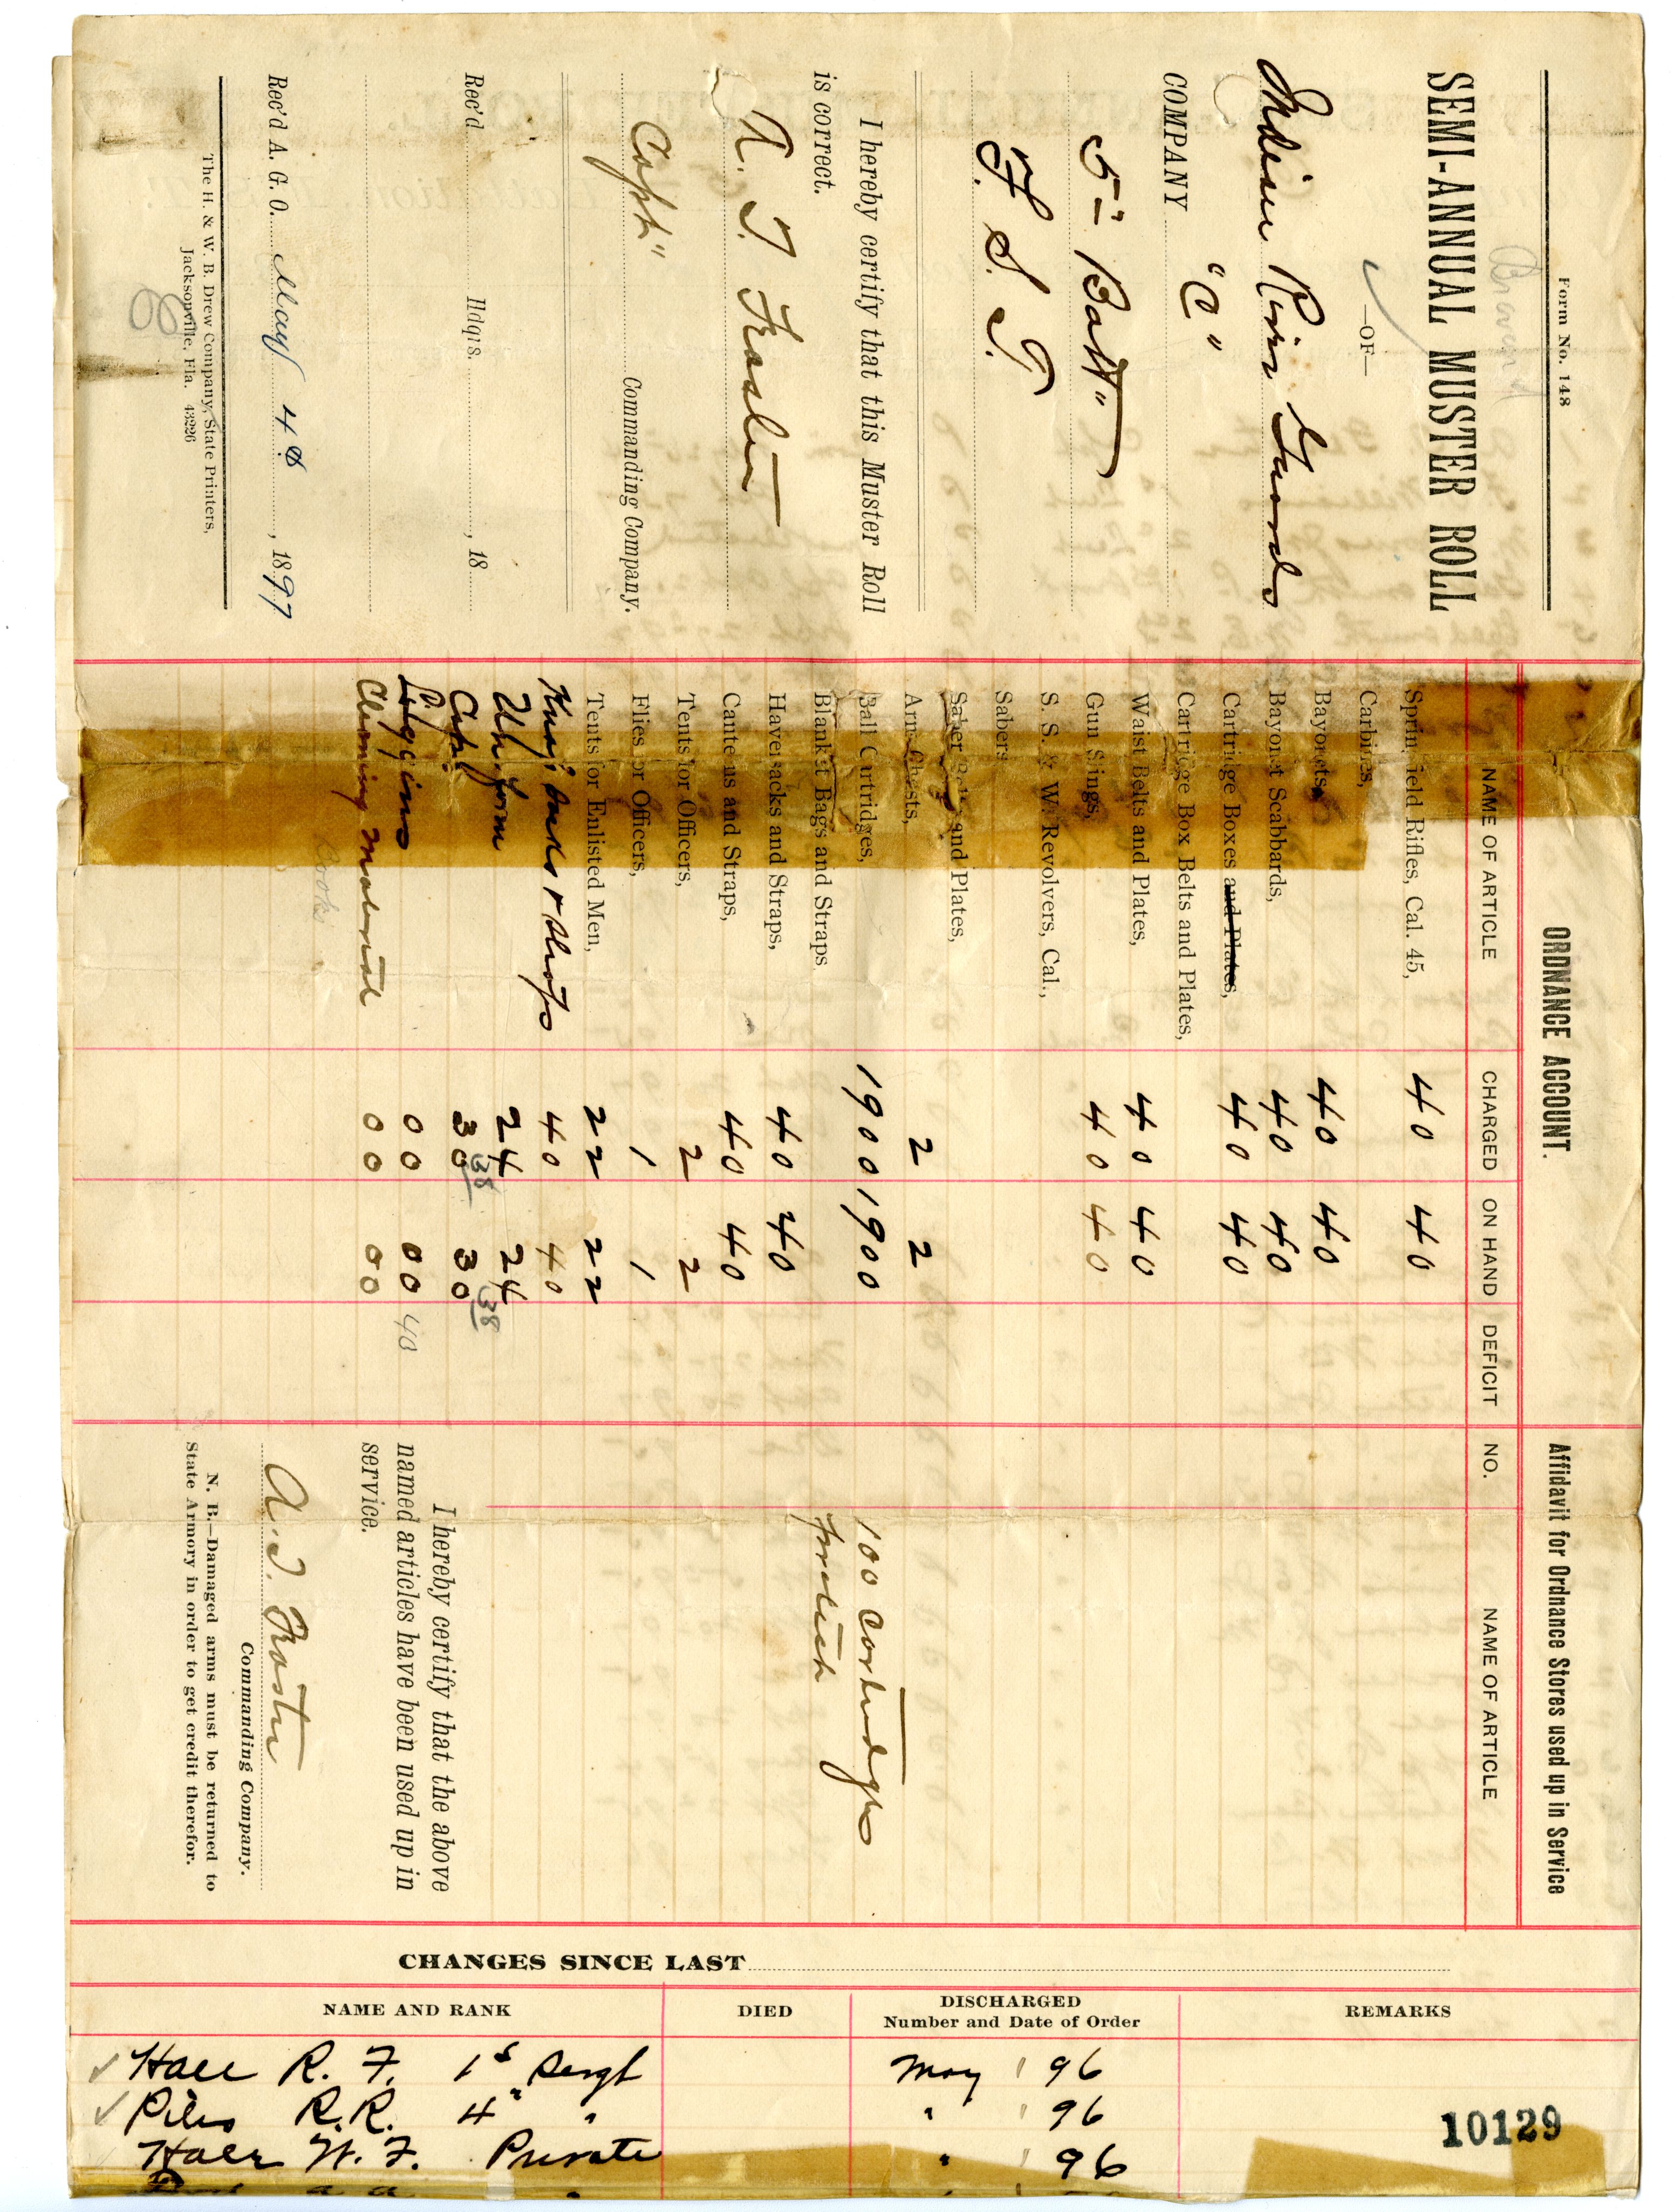 Form No. 148
Brevard
SEMI-ANNUAL MUSTER ROLL
—OF—
Indian River Guards
COMPANY "C"
5th Batt"
F. S. T.
I hereby certify that this Muster Roll
is correct.
Capt"
Commanding Company.
Rec'd Hdqrs. , 18
Rec'd A. G. O. May 4th , 1897
The H. & W. B. Drew Company, State Printers,
Jacksonville, Fla. 43226
ORDNANCE ACCOUNT.
NAME OF ARTICLE CHARGED ON HAND DEFICIT
Springfield Rifles, Cal. 45, 40 40
Carbines,
Bayonets, 40 40
Bayonet Scabbards, 40 40
Cartridge Boxes and Plates, 40 40
Cartridge Box Belts and Plates,
Waist Belts and Plates, 40 40
Gun Slings, 40 40
S. S. & W. Revolvers, Cal.,
Sabers
Saber Belts and Plates,
Arm Chests, 2 2
Ball Cartridges, 1900 1900
Blanket Bags and Straps
Haversacks and Straps, 40 40
Canteens and Straps, 40 40
Tents for Officers, 2 2
Flies for Officers, 1 1
Tents for Enlisted Men, 22 22
Knap Sacks & Straps 40 40
Uniform 24 24
38 38
Caps 30 30
Leggins 00 00 40
Cleaning Material 00 00
Cooks
Affidavit for Ordnance Stores used up in Service
NO. NAME OF ARTICLE
100 Cartridges
practice
I hereby certify that the above
named articles have been used up in
service.
Commanding Company.
N. B.—Damaged arms must be returned to
State Armory in order to get credit therefor.
CHANGES SINCE LAST
NAME AND RANK DIED DISCHARGED
Number and Date of Order REMARKS
Hall R. F. 1s Sergt May 96
R. R. 4" " " 96
W. F. Private " 96
10129